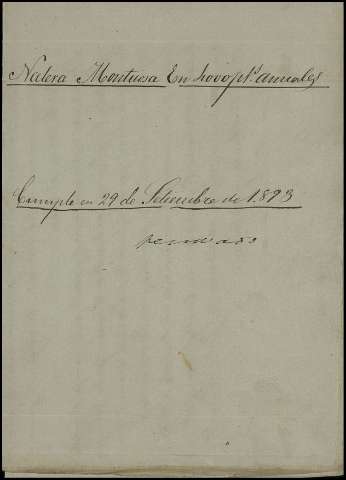 Natera Montuosa En 4000 pts anuales
Cumple en 29 de Setiembre de 1.893